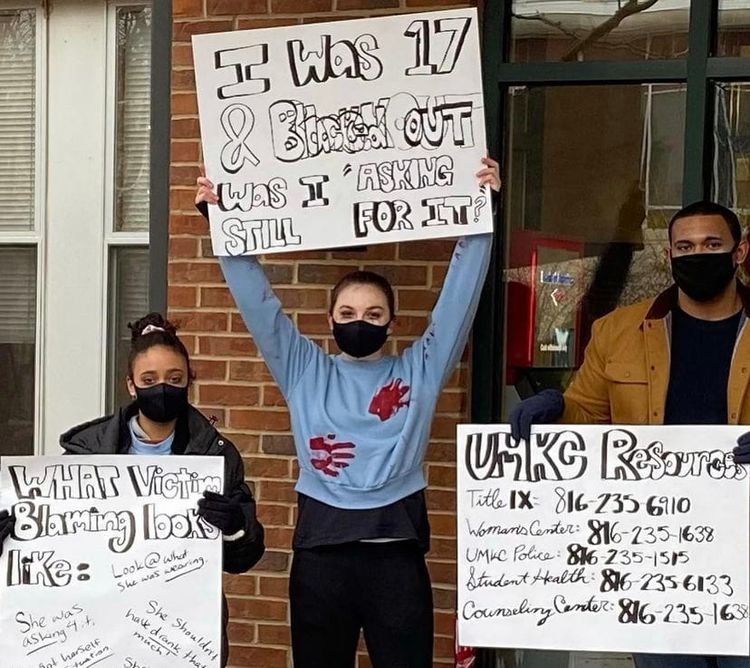 I Was 17
& Blacked OUT
WAS I "ASKING
STILL FOR IT?
WHAT Victim
Blaming looks
like:
Look @ what
she was wearing.
She was
asking 4 it.
She Shouldn't
have drank that
much!
got herself
situation.
UMKC Resources
Title IX: 816-235-6910
Womans Center: 816-235-1638
UMKC Police: 816-235-1515
Student Health: 816-235-6133
Counseling Center: 816-235-1638